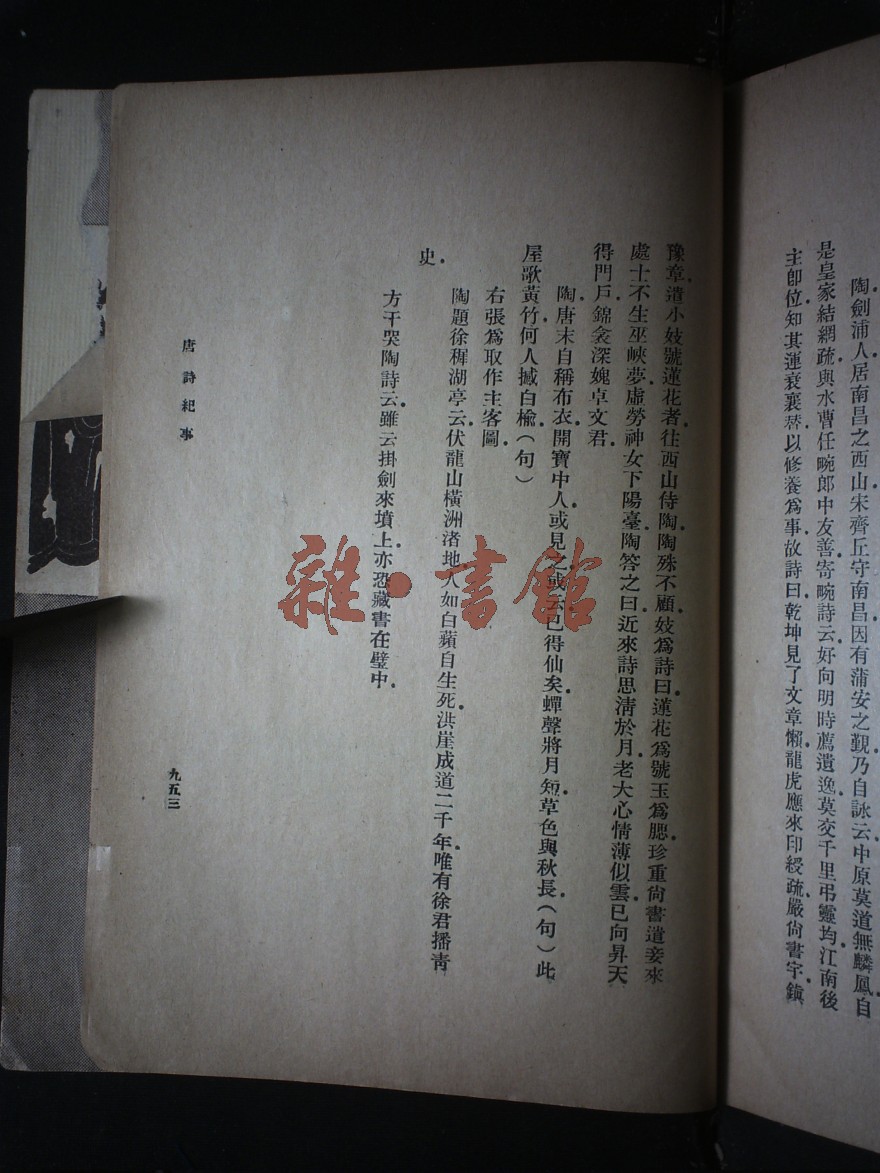 陶劍浦人。居南昌之西山。宋齊丘守南昌。因有蒲安之覲。乃自詠云。中原莫道無麟鳳。自
是皇家結網疏。與水曹任畹郎中友善。寄畹詩云。好向明時薦遺逸。莫交千里弔靈均。江南後
主卽位。知其運衰襄替。以修養爲事。故詩曰。乾坤見了文章懶。龍虎應來印綬疏。嚴尙書宇鎭
豫章。遣小妓號蓮花者。往西山侍陶。陶殊不顧。妓爲詩曰。蓮花爲號玉爲腮。珍重尙書遣妾來。
處士不生巫峽夢。虛勞神女下陽臺。陶答之曰。近來詩思淸於月。老大心情薄似雲。已向昇天
得門戶。錦衾深媿卓文君。
陶唐末自稱布衣。開寶中人或見之。或云已得仙矣。蟬聲將月短。草色與秋長。(句)此
屋歌黃竹。何人撼白楡。(句)
右張爲取作主客圖。
陶題徐穉湖亭云。伏龍山橫洲渚地。人如白蘋自生死。洪崖成道二千年。唯有徐君播靑
史。
方干哭陶詩云。雖云掛劍來墳上。亦恐藏書在壁中。
唐詩紀事
九五三
雜·書館